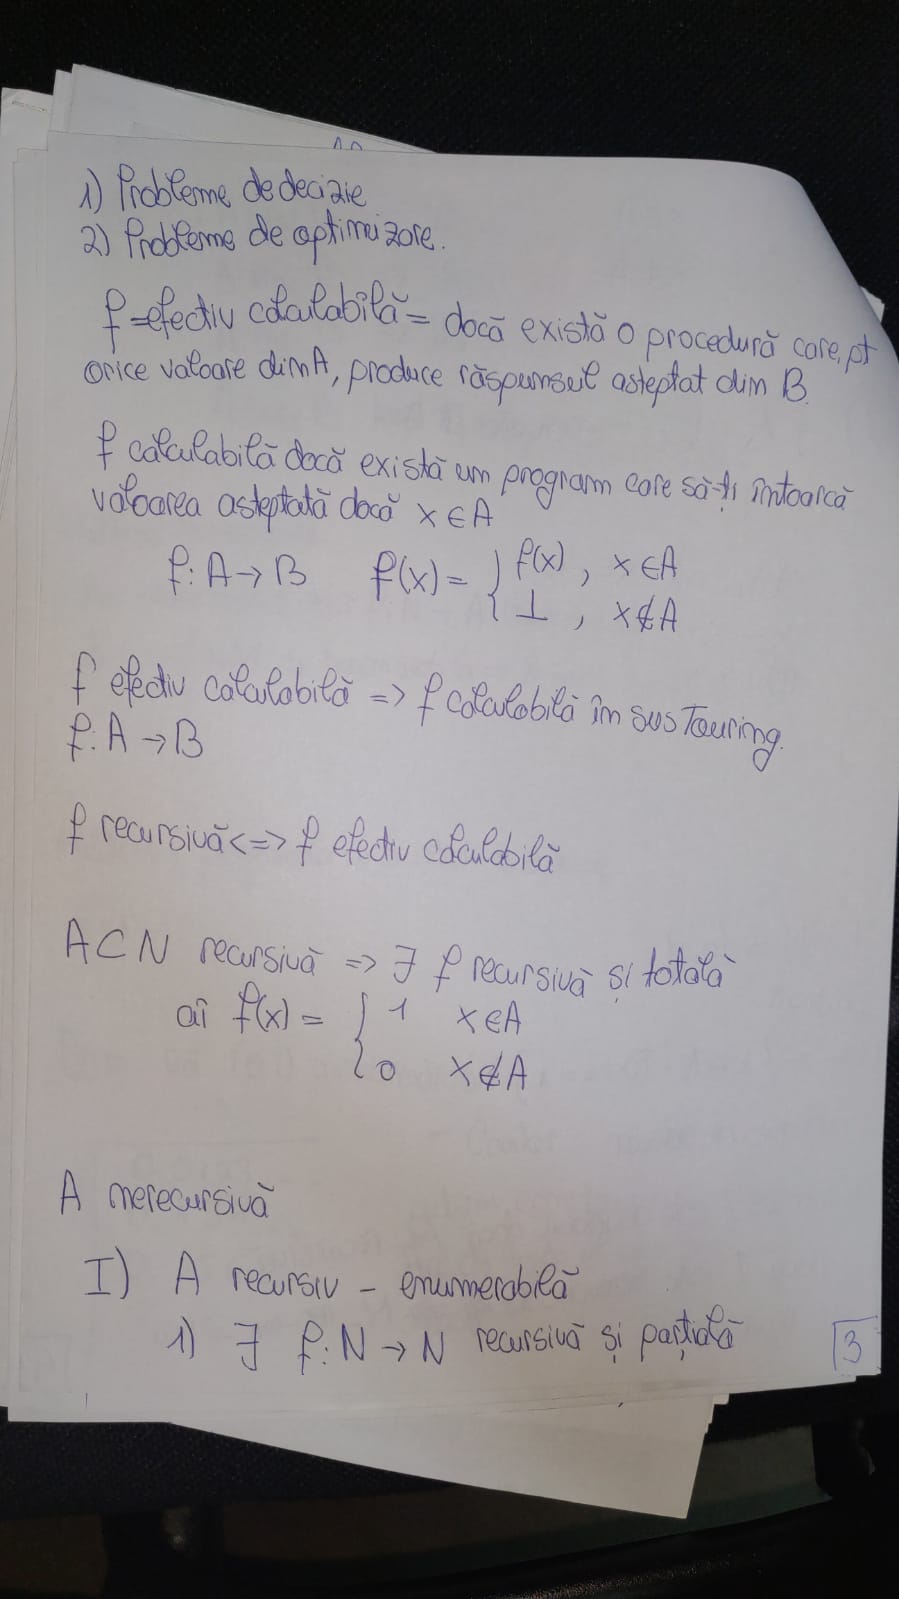 1) Probleme de decizie
2) Probleme de optimizare.
f=efectiv calculabilă= dacă există o procedură care, pt
orice valoare din A, produce răspunsul asteptat din B.
f calculabilă dacă există un program care să-ți întoarcă
valoarea asteptată dacă x ∈ A
f: A → B f(x) = { f(x) , x ∈ A
⊥ , x ∉ A
f efectiv calculabilă => f calculabilă în sus Touring.
f: A → B
f recursivă <=> f efectiv calculabilă
A ⊂ N recursivă => ∃ f recursivă și totală
aî f(x) = { 1 x ∈ A
0 x ∉ A
A nerecursivă
I) A recursiv - enumerabilă
1) ∃ f: N → N recursivă și parțială
3